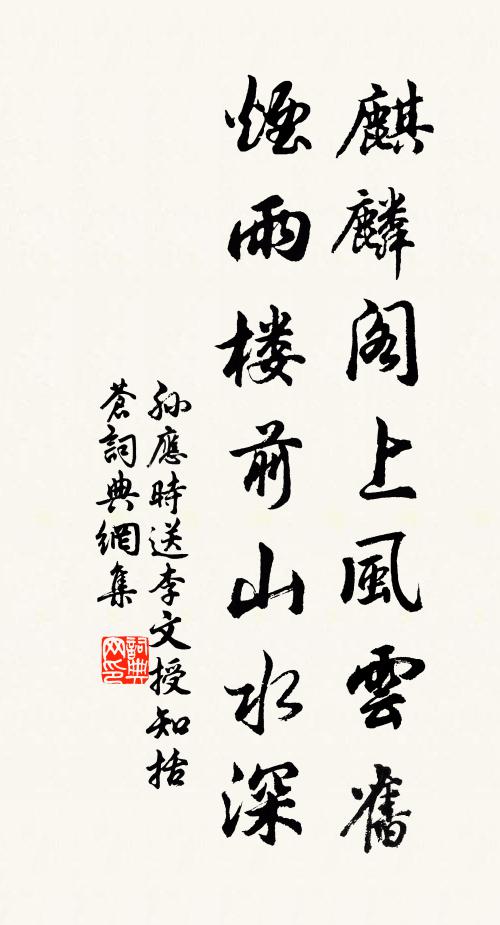 麒麟阁上風雲舊
煙雨楼前山水深
孙應時送李文授知括
蒼詞典網集
詞典网印